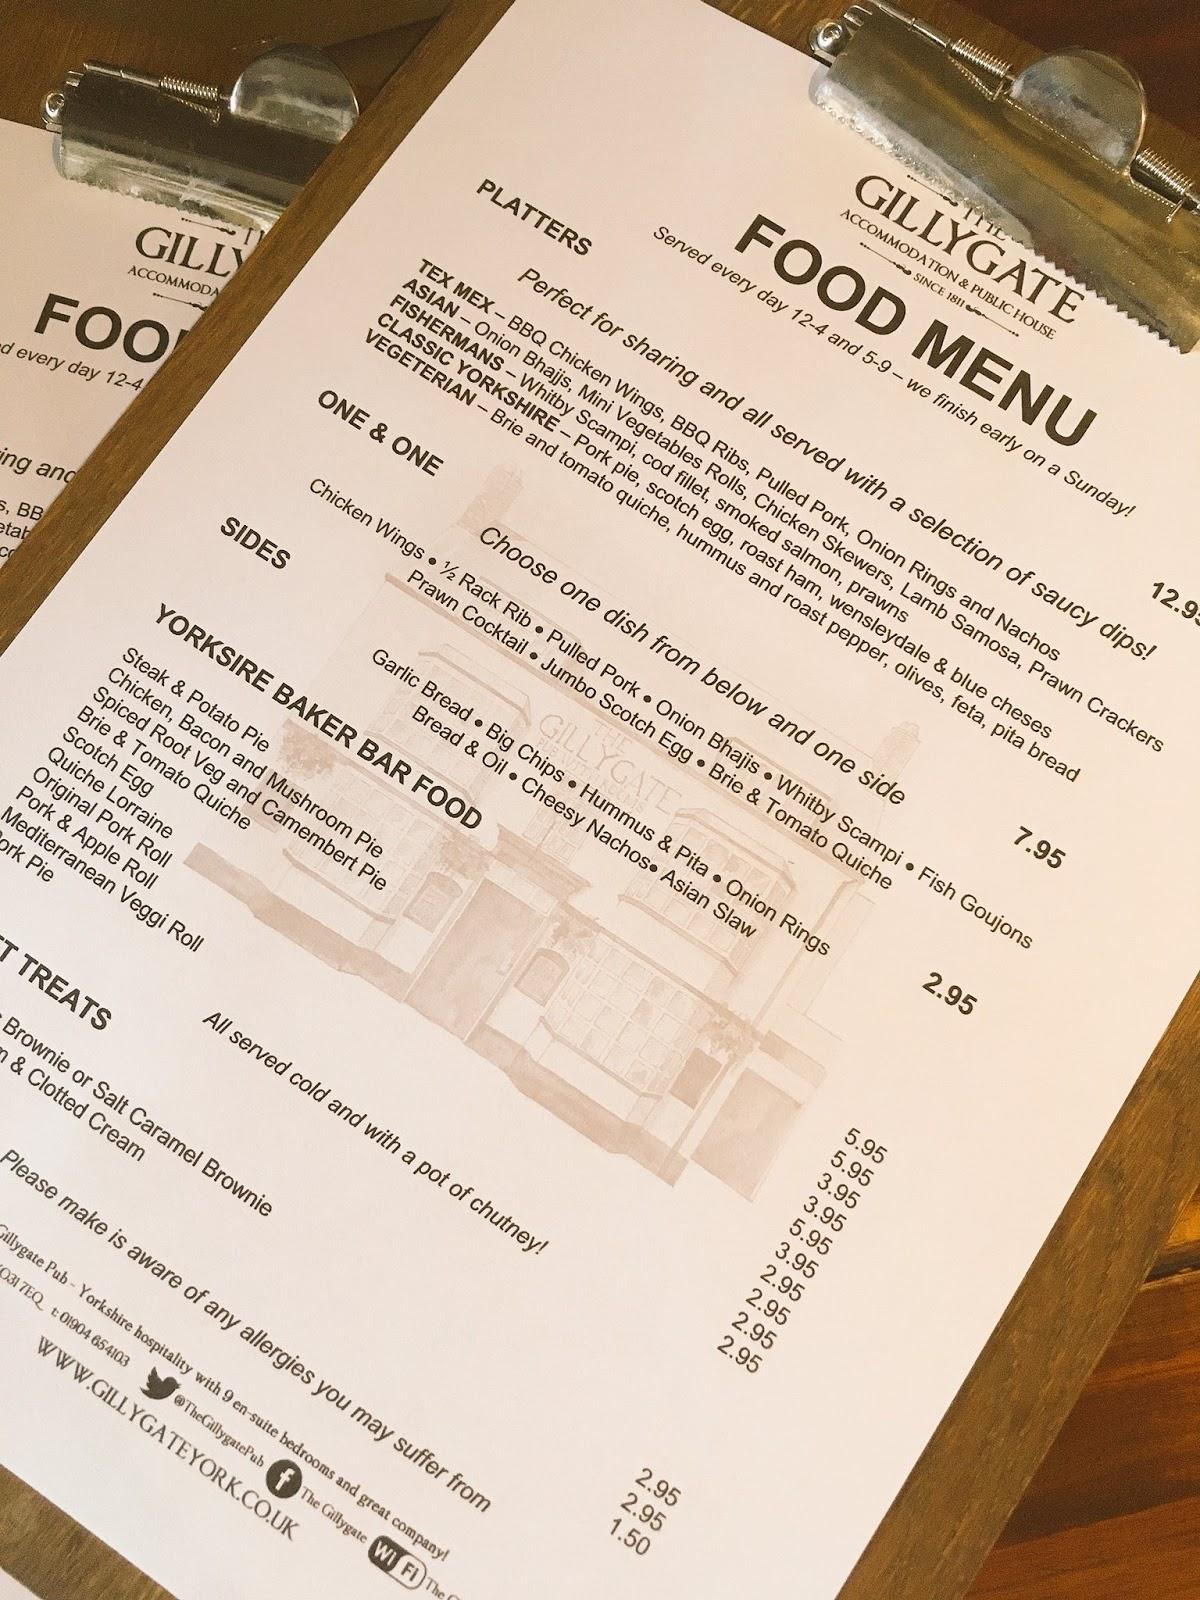 THE
GILLYGATE
ACCOMMODATION & PUBLIC HOUSE
SINCE 1811
FOOD MENU
Served every day 12-4 and 5-9 – we finish early on a Sunday!
PLATTERS
Perfect for sharing and all served with a selection of saucy dips!
12.95
TEX MEX – BBQ Chicken Wings, BBQ Ribs, Pulled Pork, Onion Rings and Nachos
ASIAN – Onion Bhajjs, Mini Vegetables Rolls, Chicken Skewers, Lamb Samosa, Prawn Crackers
FISHERMANS – Whitby Scampi, cod fillet, smoked salmon, prawns
CLASSIC YORKSHIRE – Pork pie, scotch egg, roast ham, wensleydale & blue cheses
VEGETERIAN – Brie and tomato quiche, hummus and roast pepper, olives, feta, pita bread
ONE & ONE
Choose one dish from below and one side
7.95
Chicken Wings • ½ Rack Rib • Pulled Pork • Onion Bhajis • Whitby Scampi • Fish Goujons
Prawn Cocktail • Jumbo Scotch Egg • Brie & Tomato Quiche
SIDES
2.95
Garlic Bread • Big Chips • Hummus & Pita • Onion Rings
Bread & Oil • Cheesy Nachos• Asian Slaw
YORKSIRE BAKER BAR FOOD
Steak & Potato Pie 5.95
Chicken, Bacon and Mushroom Pie 5.95
Spiced Root Veg and Camembert Pie 3.95
Brie & Tomato Quiche 3.95
Scotch Egg 5.95
Quiche Lorraine 3.95
Original Pork Roll 2.95
Pork & Apple Roll 2.95
Mediterranean Veggi Roll 2.95
Pie 2.95
All served cold and with a pot of chutney!
TREATS
Brownie or Salt Caramel Brownie 2.95
& Clotted Cream 2.95
1.50
Please make is aware of any allergies you may suffer from
Gillygate Pub - Yorkshire hospitality with 9 en-suite bedrooms and great company!
7EQ t: 01904 654103 @TheGillygatePub The Gillygate WiFi The
WWW.GILLYGATEYORK.CO.UK
THE
GILLYGATE
ACCOMMODA
FOO
every day 12-4